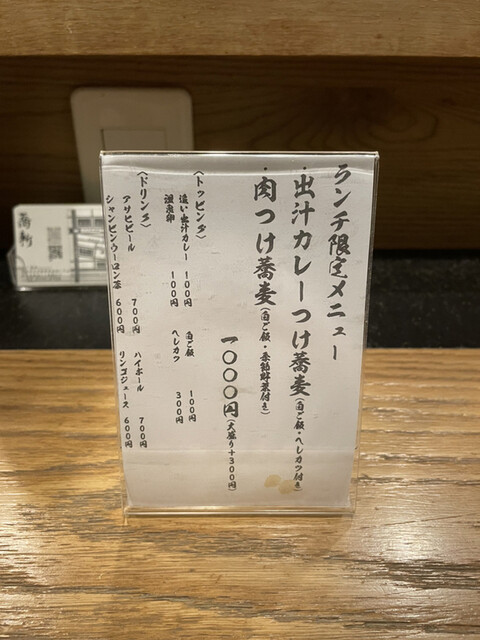 ランチ限定メニュー
・出汁カレーつけ蕎麦(白ご飯・ヘレカツ付き)
・肉つけ蕎麦(白ご飯・季節野菜付き)
一〇〇〇円(大盛り+300円)
〈トッピング〉
追い出汁カレー 100円 白ご飯 100円
温泉卵 100円 ヘレカツ 300円
〈ドリンク〉
アサヒビール 700円 ハイボール 700円
シャンピンウーロン茶 600円 リンゴジュース 600円